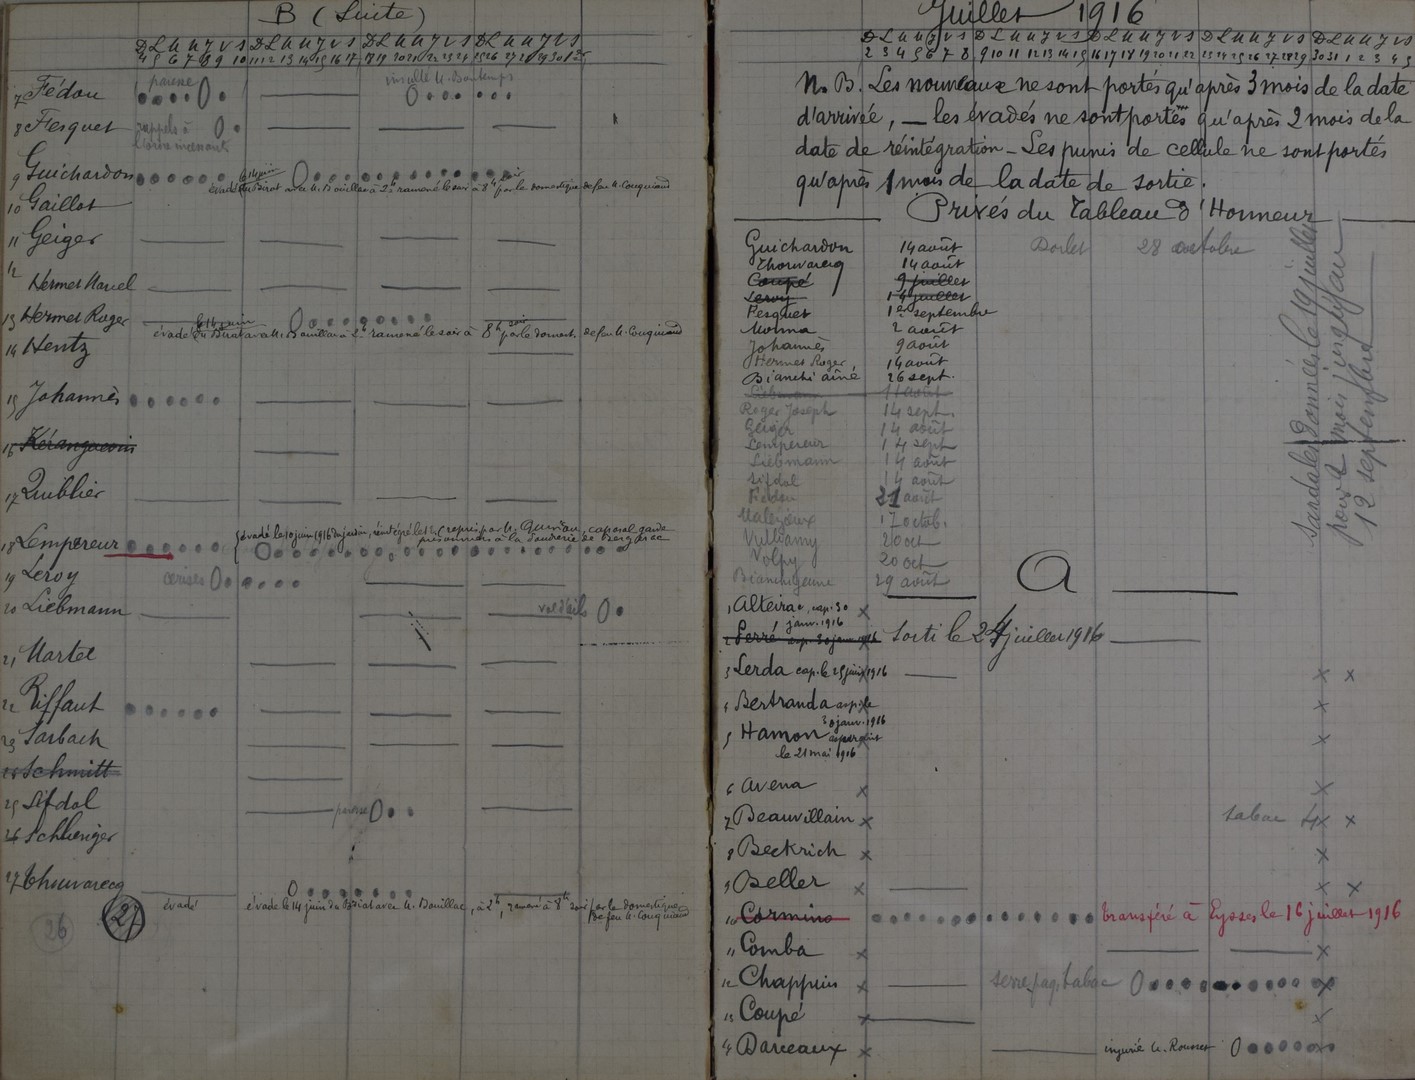 B (Suite)
D L M M J V S D L M M J V S D L M M J V S D L M M J V S
4 5 6 7 8 9 10 11 12 13 14 15 16 17 18 19 20 21 22 23 24 25 26 27 28 29 30 1
7 Fédou
insulte M. Bontemps
8 Fesquet rappels à
9 Guichardon
évadé du Birat avec M. Bouillac à 2h ramené le soir à 8h par le domestique de feu M. Couquiaud
10 Gaillot
11 Geiger
12 Hermet Marcel
13 Hermet Roger le 14 juin
évadé du Birat avec M. Bouillac à 2h ramené le soir à 8h soir par le domest. de feu M. Couquiaud
14 Hentz
15 Johannès
16
17 Quiblier
18 Lempereur évadé le 10 juin 1916 du jardin, réintégré le repris par M. caporal garde
prisonniers à la Poudrerie de Bergerac
19 Leroy cerises
20 Liebmann vol d'ails
21 Martel
22 Riffaut
23 Sarbach
24 Schmitt
25 Sifdal
26 Schlienger
27 Thouvarecq
évadé évadé le 14 juin du Birat avec M. Bouillac, à 2h, ramené à 8h soir par le domestique
de feu M. Couquiaud
26 27
Juillet 1916
D L M M J V S D L M M J V S D L M M J V S D L M M J V S D L M M J V S
2 3 4 5 6 7 8 9 10 11 12 13 14 15 16 17 18 19 20 21 22 23 24 25 26 27 28 29 30 31 1 2 3 4 5
N. B. Les nouveaux ne sont portés qu'après 3 mois de la date
d'arrivée, — les évadés ne sont portés qu'après 2 mois de la
date de réintégration — Les punis de cellule ne sont portés
qu'après 1 mois de la date de sortie.
Privés du Tableau d'Honneur
Guichardon 14 août 28 octobre
Thouvarecq 14 août
Coupé 9 juillet
Leroy 14 juillet
Fesquet 1er septembre
Mouma 2 août
Johannès 9 août
Hermet Roger 14 août
Bianchi aîné 26 sept.
Liebmann 11 août
Roger Joseph 14 sept.
Geiger 14 août
Lempereur 14 sept
Liebmann 14 août
Sifdal 14 août
Fédou 21 août
Malézieux 17 octob.
Vuldamy 20 oct
Volpy 20 oct
Bianchi jeune 29 août
Sandales données le 19 juillet
12 septembre
A
1 Alteirac, cap. 30
janv. 1916
2 Perré Sorti le 24 juillet 1916
3 Lerda cap. le 25 juin 1916
4 Bertranda
5 Hamon 30 janv. 1916
le 21 mai 1916
6 Avena
7 Beauvillain tabac 4
8 Beckrich
9 Beller
10 Cormino transféré à Eysses le 16 juillet 1916
11 Comba
12 Chappuis tabac
13 Coupé
14 Darceaux injurié M. Rousset